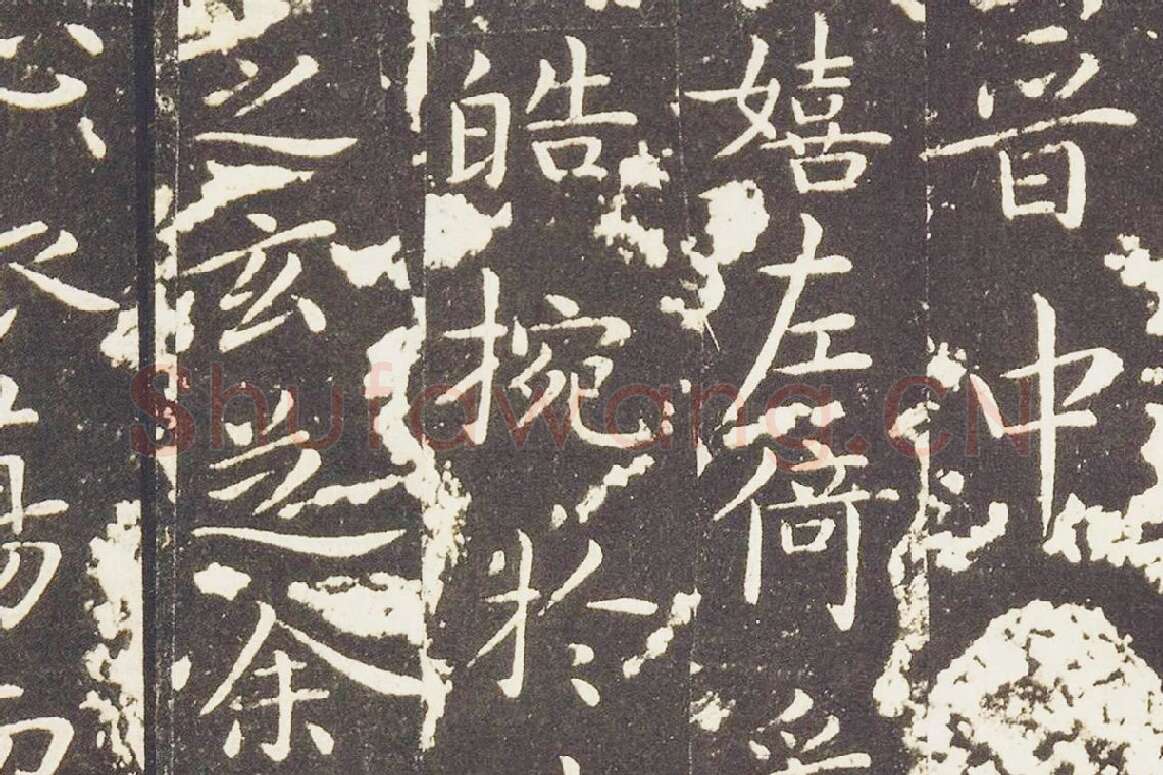 晋中
嬉左倚采
皓捥於
之玄芝余
Shufawang.CN